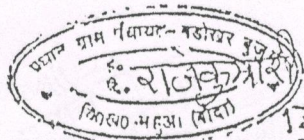 प्रधान ग्राम पंचायत - बडोखर बुजुर्ग
ह०
राजकुमारी
वि०ख० महुआ (बाँदा)